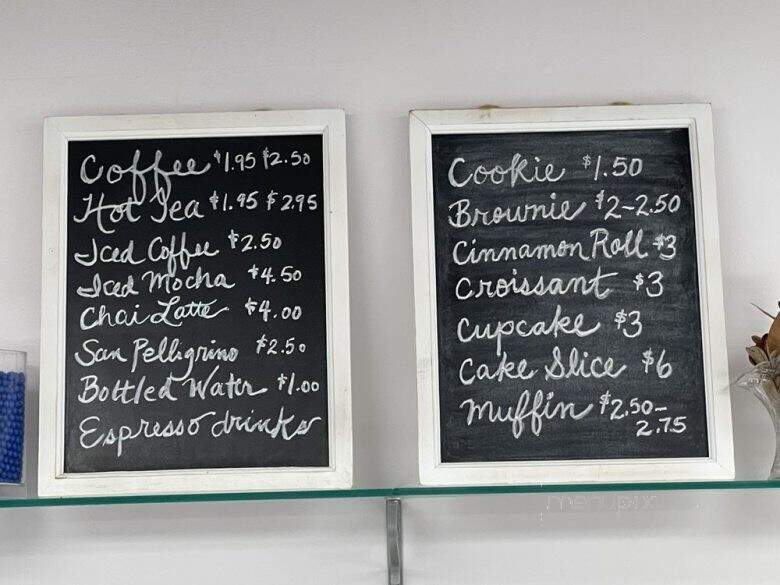 Coffee $1.95 $2.50
Hot Tea $1.95 $2.95
Iced Coffee $2.50
Iced Mocha $4.50
Chai Latte $4.00
San Pellegrino $2.50
Bottled Water $1.00
Espresso drinks
Cookie $1.50
Brownie $2-2.50
Cinnamon Roll $3
Croissant $3
Cupcake $3
Cake Slice $6
Muffin $2.50-
2.75
menupix